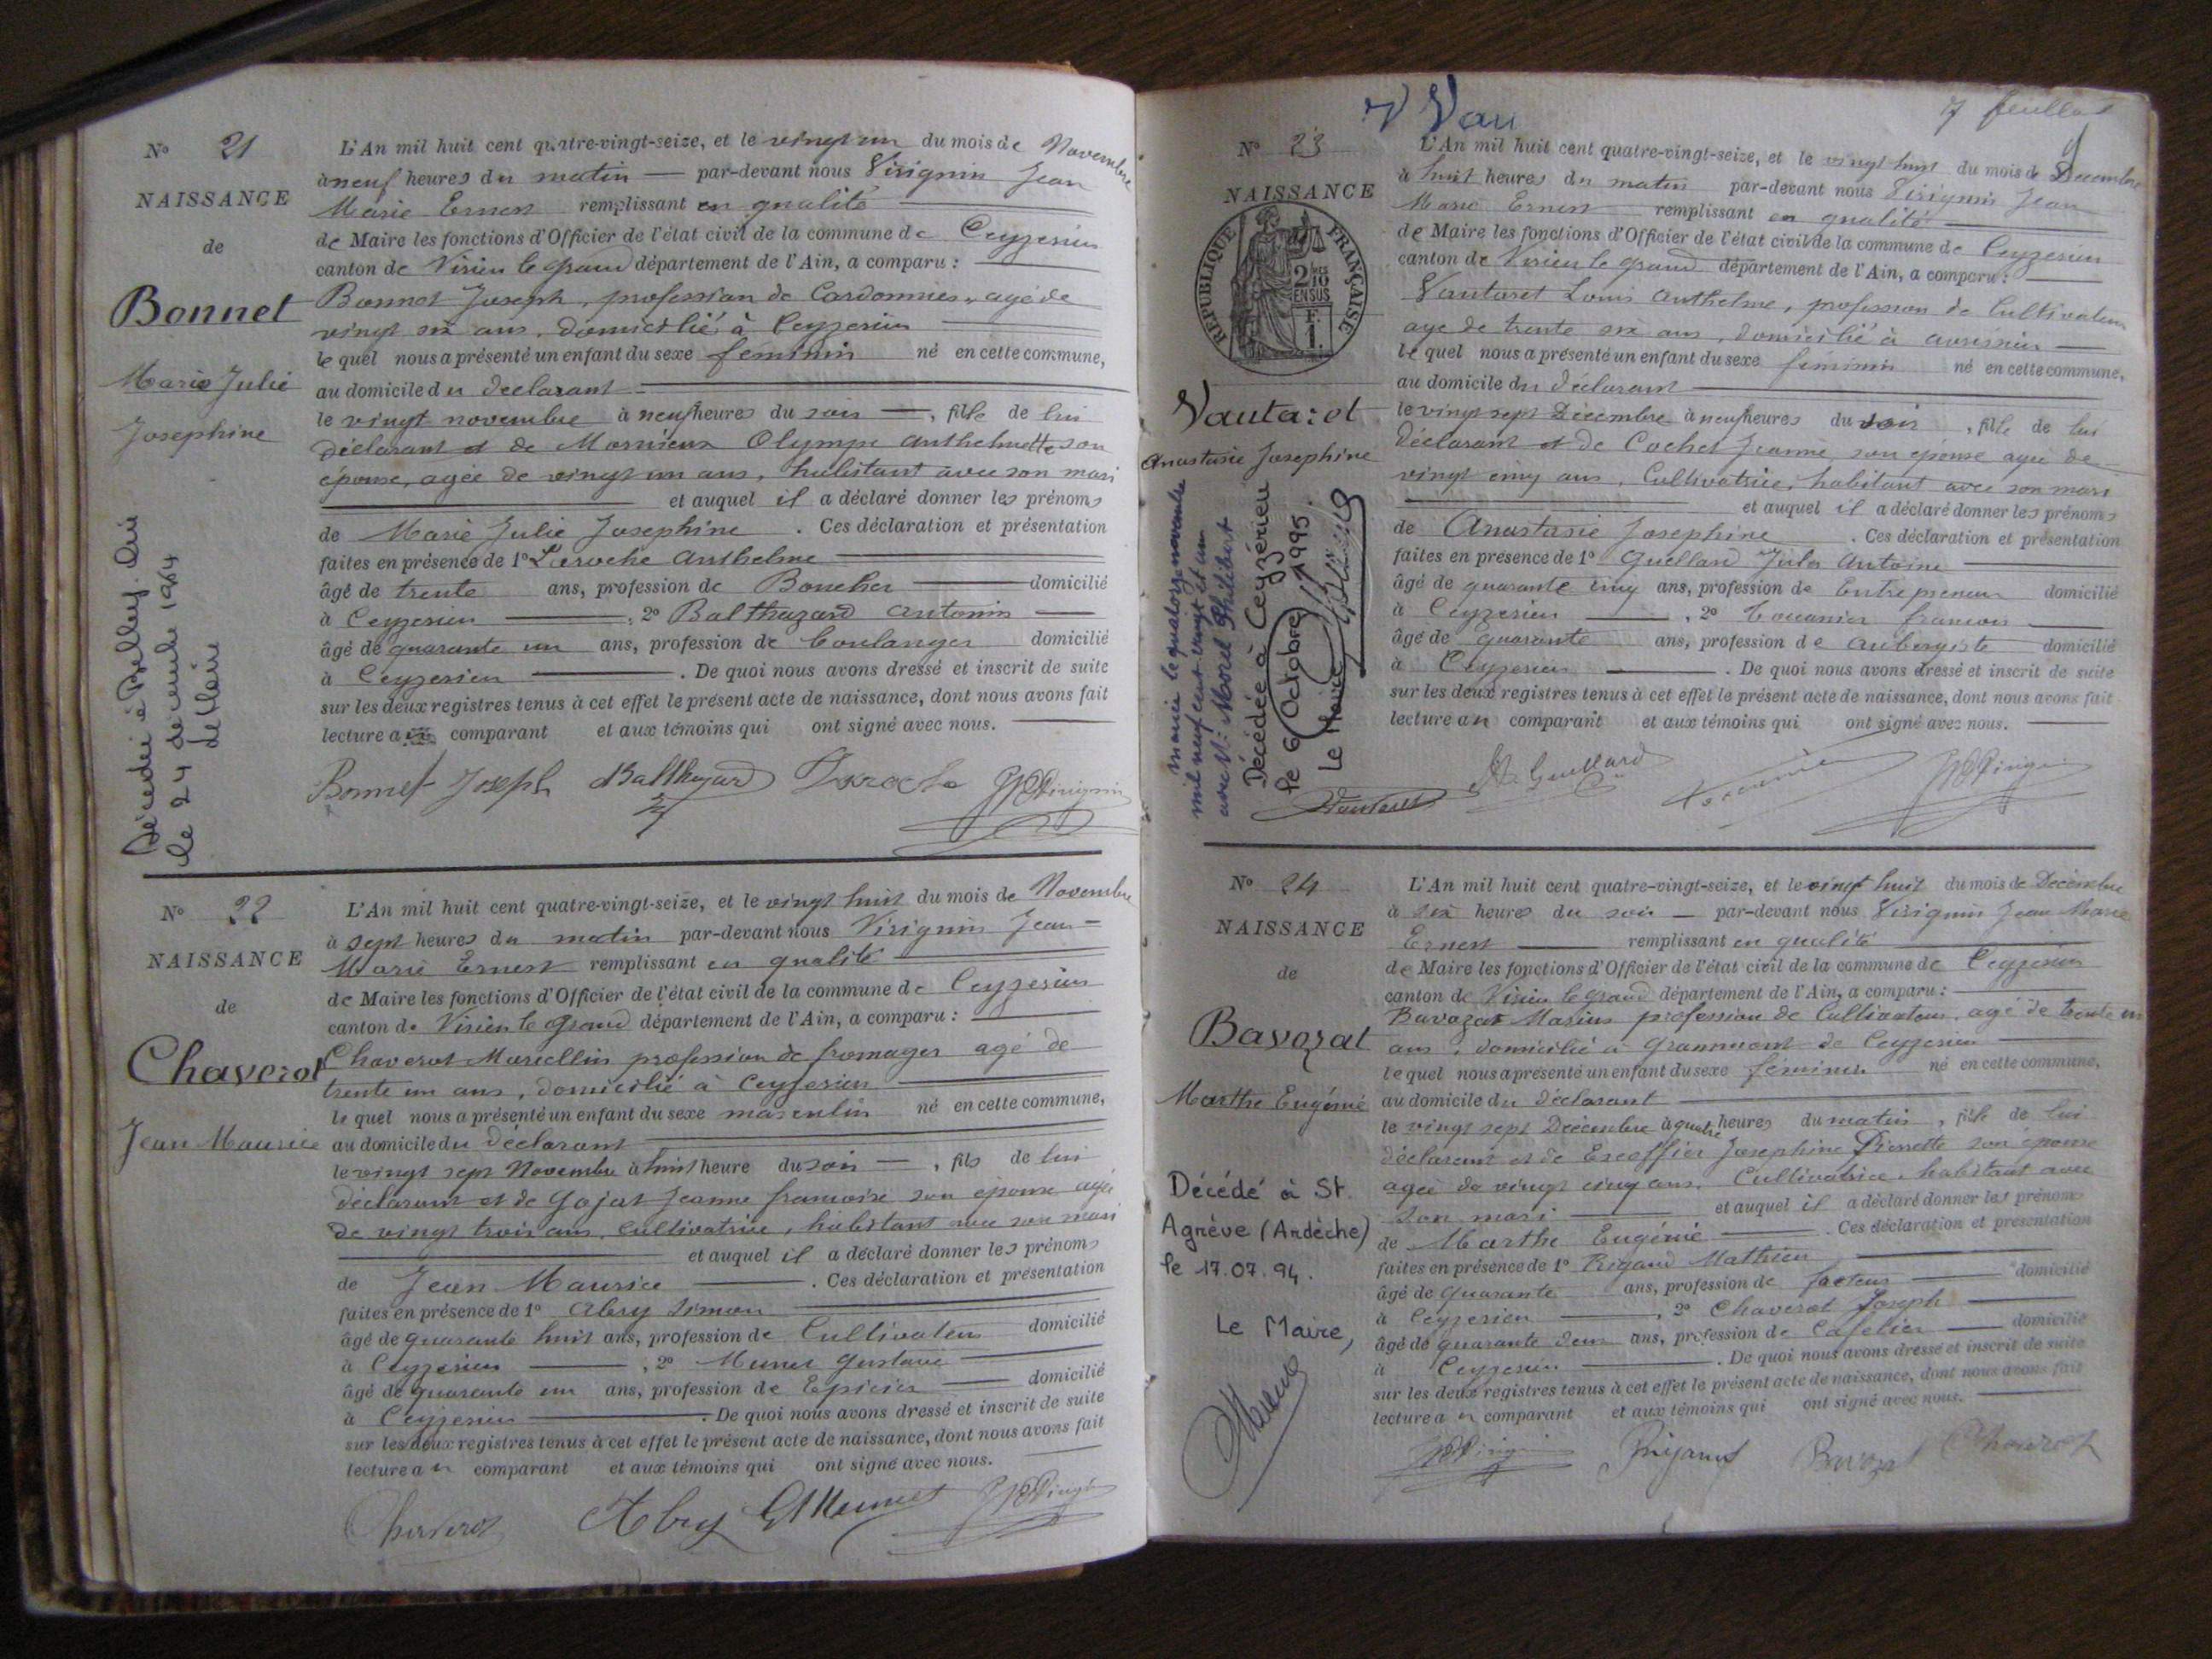 No 21
NAISSANCE
de
Bonnet
Marie Julie
Josephine
Décédée à Belley, Ain
le 24 décembre 1964
L'An mil huit cent quatre-vingt-seize, et le vingt un du mois de Novembre
à neuf heures du matin — par-devant nous Virignin Jean
Marie Ernest remplissant en qualité
de Maire les fonctions d'Officier de l'état civil de la commune de Ceyzerieu
canton de Virieu le grand département de l'Ain, a comparu :
Bonnet Joseph, profession de Cordonnier, agé de
vingt six ans, domicilié à Ceyzerieu
le quel nous a présenté un enfant du sexe feminin né en cette commune,
au domicile du déclarant
le vingt novembre à neuf heures du soir —, fille de lui
déclarant et de Olympe Anthelmette son
épouse, agée de vingt un ans, habitant avec son mari
et auquel il a déclaré donner les prénoms
de Marie Julie Josephine . Ces déclaration et présentation
faites en présence de 1o Laroche Anthelme
âgé de trente ans, profession de Boucher domicilié
à Ceyzerieu , 2o Balthazard Antonin
âgé de quarante un ans, profession de boulanger domicilié
à Ceyzerieu . De quoi nous avons dressé et inscrit de suite
sur les deux registres tenus à cet effet le présent acte de naissance, dont nous avons fait
lecture au comparant et aux témoins qui ont signé avec nous.
Bonnet Joseph Balthazard Laroche Virignin
No 22
NAISSANCE
de
Chaverot
Jean Maurice
L'An mil huit cent quatre-vingt-seize, et le vingt huit du mois de Novembre
à sept heures du matin par-devant nous Virignin Jean
Marie Ernest remplissant en qualité
de Maire les fonctions d'Officier de l'état civil de la commune de Ceyzerieu
canton de Virieu le Grand département de l'Ain, a comparu :
Chaverot Marcellin profession de fromager agé de
trente un ans, domicilié à Ceyzerieu
le quel nous a présenté un enfant du sexe masculin né en cette commune,
au domicile du déclarant
le vingt sept Novembre à huit heure du soir —, fils de lui
déclarant et de Gojat Jeanne francoise son épouse agée
de vingt trois ans, cultivatrice, habitant avec son mari
et auquel il a déclaré donner les prénoms
de Jean Maurice . Ces déclaration et présentation
faites en présence de 1o Abry Simon
âgé de quarante huit ans, profession de Cultivateur domicilié
à Ceyzerieu , 2o Meunet Gustave
âgé de quarante un ans, profession de Epicier domicilié
à Ceyzerieu . De quoi nous avons dressé et inscrit de suite
sur les deux registres tenus à cet effet le présent acte de naissance, dont nous avons fait
lecture au comparant et aux témoins qui ont signé avec nous.
Chaverot Abry G Meunet Virignin
Vau
7 feuillet
No 23
NAISSANCE
RÉPUBLIQUE FRANÇAISE
2/10
EN SUS
F.
1.
Vautaret
Anastasie Josephine
mariée le quatorze novembre
mil neuf cent vingt et un
avec Mr Morel Philibert
Décédée à Ceyzérieu
le 6 Octobre 1995.
Le Maire
L'An mil huit cent quatre-vingt-seize, et le vingt huit du mois de Decembre
à huit heures du matin par-devant nous Virignin Jean
Marie Ernest remplissant en qualité
de Maire les fonctions d'Officier de l'état civil de la commune de Ceyzerieu
canton de Virieu le grand département de l'Ain, a comparu :
Vautaret Louis Anthelme, profession de Cultivateur
age de trente six ans, domicilié à
le quel nous a présenté un enfant du sexe féminin né en cette commune,
au domicile du déclarant
le vingt sept Décembre à neuf heures du soir , fille de lui
déclarant et de Cochet Jeanne, son épouse agée de
vingt cinq ans, Cultivatrice, habitant avec son mari
et auquel il a déclaré donner les prénoms
de Anastasie Josephine . Ces déclaration et présentation
faites en présence de 1o Guillard Jules Antoine
âgé de quarante cinq ans, profession de Entrepreneur domicilié
à Ceyzerieu , 2o francois
âgé de quarante ans, profession de aubergiste domicilié
à Ceyzerieu . De quoi nous avons dressé et inscrit de suite
sur les deux registres tenus à cet effet le présent acte de naissance, dont nous avons fait
lecture au comparant et aux témoins qui ont signé avec nous.
Vautaret Guillard Virignin
No 24
NAISSANCE
de
Bavozat
Marthe Eugénie
Décédé à St.
Agrève (Ardèche)
le 17.07.94.
Le Maire,
L'An mil huit cent quatre-vingt-seize, et le vingt huit du mois de Decembre
à six heures du soir — par-devant nous Virignin Jean Marie
Ernest remplissant en qualité
de Maire les fonctions d'Officier de l'état civil de la commune de Ceyzerieu
canton de Virieu le grand département de l'Ain, a comparu :
Bavozat Marius profession de Cultivateur, agé de trente un
ans, domicilié à Grammont de Ceyzerieu
le quel nous a présenté un enfant du sexe féminin né en cette commune,
au domicile du déclarant
le vingt sept Décembre à quatre heures du matin , fille de lui
déclarant et de Escoffier Josephine Pierrette son épouse
agée de vingt cinq ans, Cultivatrice, habitant avec
son mari et auquel il a déclaré donner les prénoms
de Marthe Eugénie . Ces déclaration et présentation
faites en présence de 1o Rigaud Mathieu
âgé de quarante ans, profession de facteur domicilié
à Ceyzerieu , 2o Chaverot Joseph
âgé de quarante deux ans, profession de Cafetier domicilié
à Ceyzerieu . De quoi nous avons dressé et inscrit de suite
sur les deux registres tenus à cet effet le présent acte de naissance, dont nous avons fait
lecture au comparant et aux témoins qui ont signé avec nous.
Virignin Rigaud Bavozat Chaverot